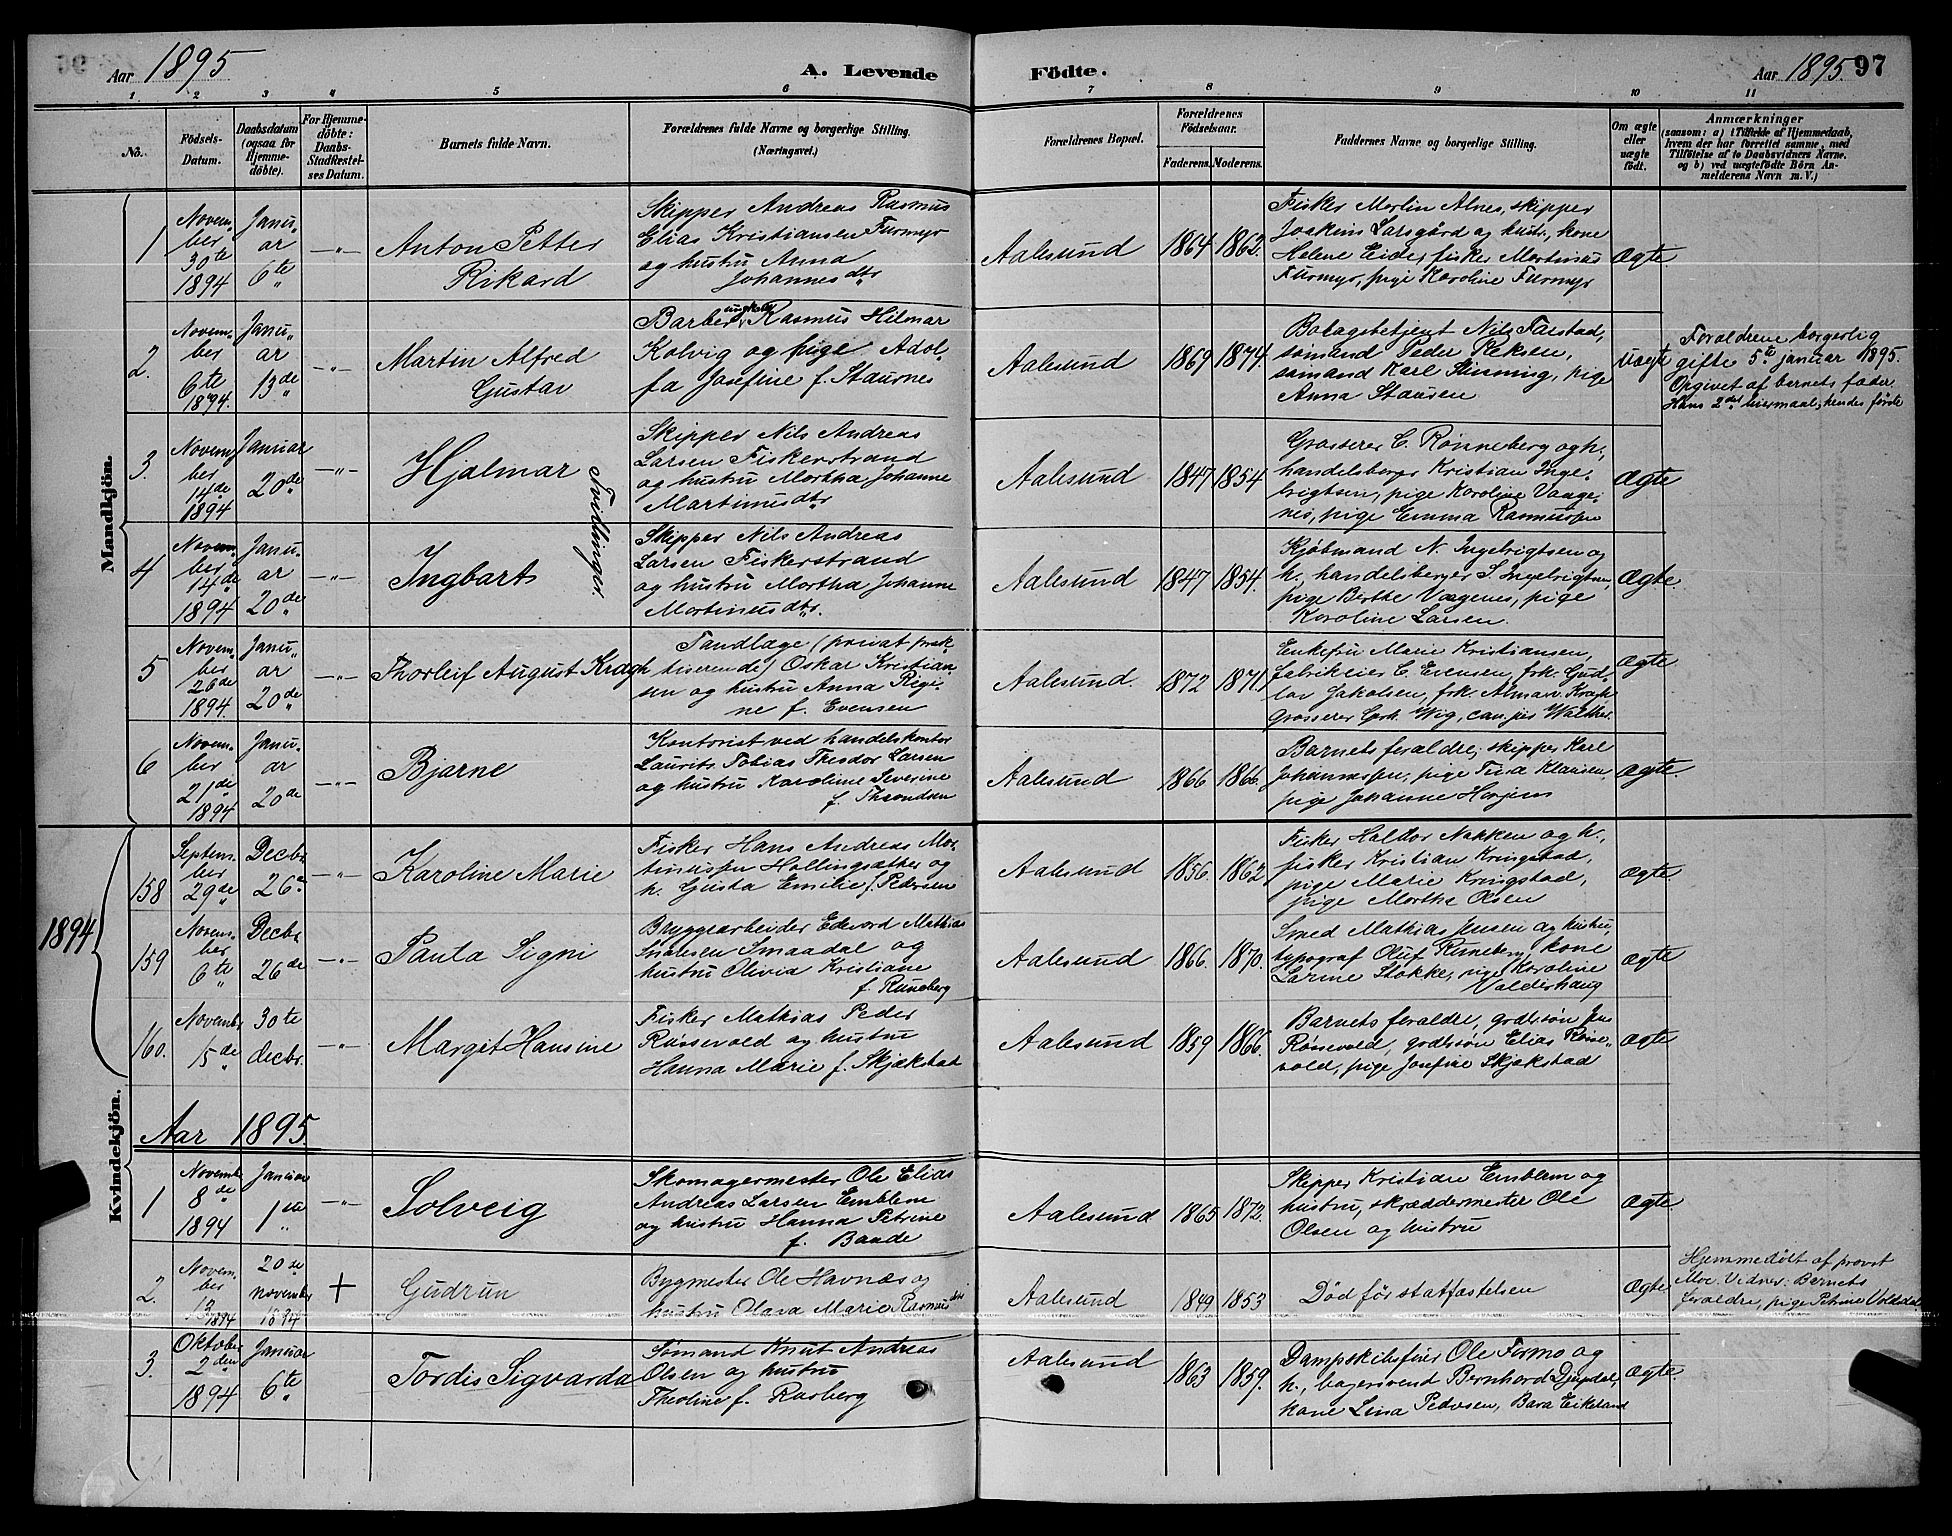 Aar 1895
A. Levende
Födte.
Aar 1895
97
1 2 3 4 5 6 7 8 9 10 11
No.
Födsels-
Datum.
Daabsdatum
(ogsaa for
Hjemme-
döbte).
For Hjemme-
döbte:
Daabs-
Stadfæstel-
ses Datum.
Barnets fulde Navn.
Forældrenes fulde Navne og borgerlige Stilling.
(Næringsvei.)
Forældrenes Bopæl.
Forældrenes
Födselsaar.
Faderens. Moderens.
Faddernes Navne og borgerlige Stilling.
Om ægte
eller
uægte
födt.
Anmærkninger
(saasom: a) i Tilfælde af Hjemmedaab,
hvem der har forrettet samme, med
Tilföielse af to Daabsvidners Navne,
og b) ved uægtefödte Börn An-
melderens Navn m. V.)
Mandkjön.
1
Novem-
ber
30te
1894
Janu-
ar
6te
Anton Petter
Rikard
Skipper Andreas Rasmus
Elias Kristiansen Furmyr
og hustru Anna
Johannesdtr
Aalesund
1864 1862.
Fisker Merlin Alnes, skipper
Joakim Larsgård og hustr., kone
Helene Eide, fisker Martinus
Furmyr, pige Karoline Furmyr
Ægte.
2.
Novem-
ber
6te
1894.
Janu-
ar
13de
Martin Alfred
Gustav
Barber, ungkarl Rasmus Hilmar
Kolvig og pige Adol-
fa Josefine f. Staurnes
Aalesund
1869 1874.
Bolagsbetjent Nils Falstad,
sømand Peder Reksen,
sømand Karl Slinning, pige
Anna Stausen
Uægte
Foraldrene borgerlig
gifte 5te januar 1895.
Opgivet af barnets fader.
Hans 2det leiermaal, hendes første
3.
Novem-
ber
14de
1894
Januar
20de
Hjalmar
Tvillinger
Skipper Nils Andreas
Larsen Fiskerstrand
og hustru Martha Johanne
Martinusdtr
Aalesund
1847 1854.
Grosserer C. Rønneberg og h.,
handelsborger Kristian Inge-
brigtsen, pige Karoline Vaage-
nes, pige Emma Rasmussen
Ægte
4
Novem-
ber
14de
1894
Janu-
ar
20de
Ingbart
Skipper Nils Andreas
Larsen Fiskerstrand
og hustru Martha Johanne
Martinusdtr.
Aalesund
1847 1854.
Kjøbmand N. Ingebrigtsen og
h., handelsborger S. Ingebrigtsen,
pige Berthe Vaagenes, pige
Karoline Larsen.
Ægte.
5
Novem-
ber
26de
1894.
Janu-
ar
20de
Thorleif August Kragh
Tandlæge (privat prak-
tiserende) Oskar Kristian-
sen og hustru Anna Regi-
ne f. Evensen
Aalesund.
1872 1871.
Enkefru Marie Kristiansen,
fabrikeier C. Evensen, frk. Gud-
lav Jakobsen, frk. Alma v. Kragh
Grosserer Wig, can. jur Walther
Ægte
6
Novem-
ber
21de
1894
Janu-
ar
20de
Bjarne
Kontorist ved handelskontor
Laurits Tobias Theodor Larsen
og hustru Karoline Severine
f. Throndsen
Aalesund
1866 1866.
Barnets foraldre, skipper Karl
Johannessen, pige Tina Klausen,
pige Johanne
Ægte.
1894
158
Septem-
ber
29de
Decbr
26de
Karoline Marie
Fisker Hans Andreas Mar-
tinussen Hollingsæther og
h. Gusta Emilie f. Pedersen
Aalesund
1856. 1862
Fisker Haldor Nakken og h.
fisker Kristian Kringstad,
pige Marie Kringstad,
pige Marthe Olsen
Ægte.
159
Novem-
ber
6te
Decbr
26de
Paula Signi
Bryggearbeider Edvard Mathias
Smaadal og
hustru Olivia Kristiane
f. Runeberg
Aalesund
1866. 1870.
Smed Mathias Jensen og hustru,
typograf Oluf Runeberg, kone
Larine Slokke, pige Karoline
Valderhaug
Ægte
160.
Novembr
15de
30te
decbr.
Margit Hansine
Fisker Mathias Peder
Rønsevold og hustru
Hanna Marie f. Skjækstat
Aalesund
1859 1866.
Barnets foraldre, grdbr.søn Jens
Rønsevold, grdbr.søn Elias Rønse-
vold, pige Josefine Skjækstad
Ægte
Kvindekjön.
Aar 1895
1
Novembr
8de
1894
Januar
1ste
Solveig
Skomagermester Ole Elias
Andreas Larsen Emblem
og hustru Hanna Petrine
f. Baade
Aalesund
1865 1872.
Skipper Kristian Emblem og
hustru, skræddermester Ole
Olsen og hustru
Ægte
2.
Novem-
ber
1894
20de
november
1894
+
Gudrun
Bygmester Ole Havnæs og
hustru Olava Marie Rasmusdtr
Aalesund
1849 1853
Død før statfæstelsen
Ægte
Hjemmedøbt af provst
Moe. Vidner: Barnets
foraldre, pige Petrine Voldsdal
3.
Oktober
2den
1894
Januar
6te
Tordis Sigvarda
Sømand Knut Andreas
Olsen og hustru
Theoline f. Rasberg
Aalesund
1863 1859.
Dampskibsfører Ole Formo og
h., bagersvend Bernhard Djupdal,
kone Lina Pedersen, Bara Eikeland
Ægte.